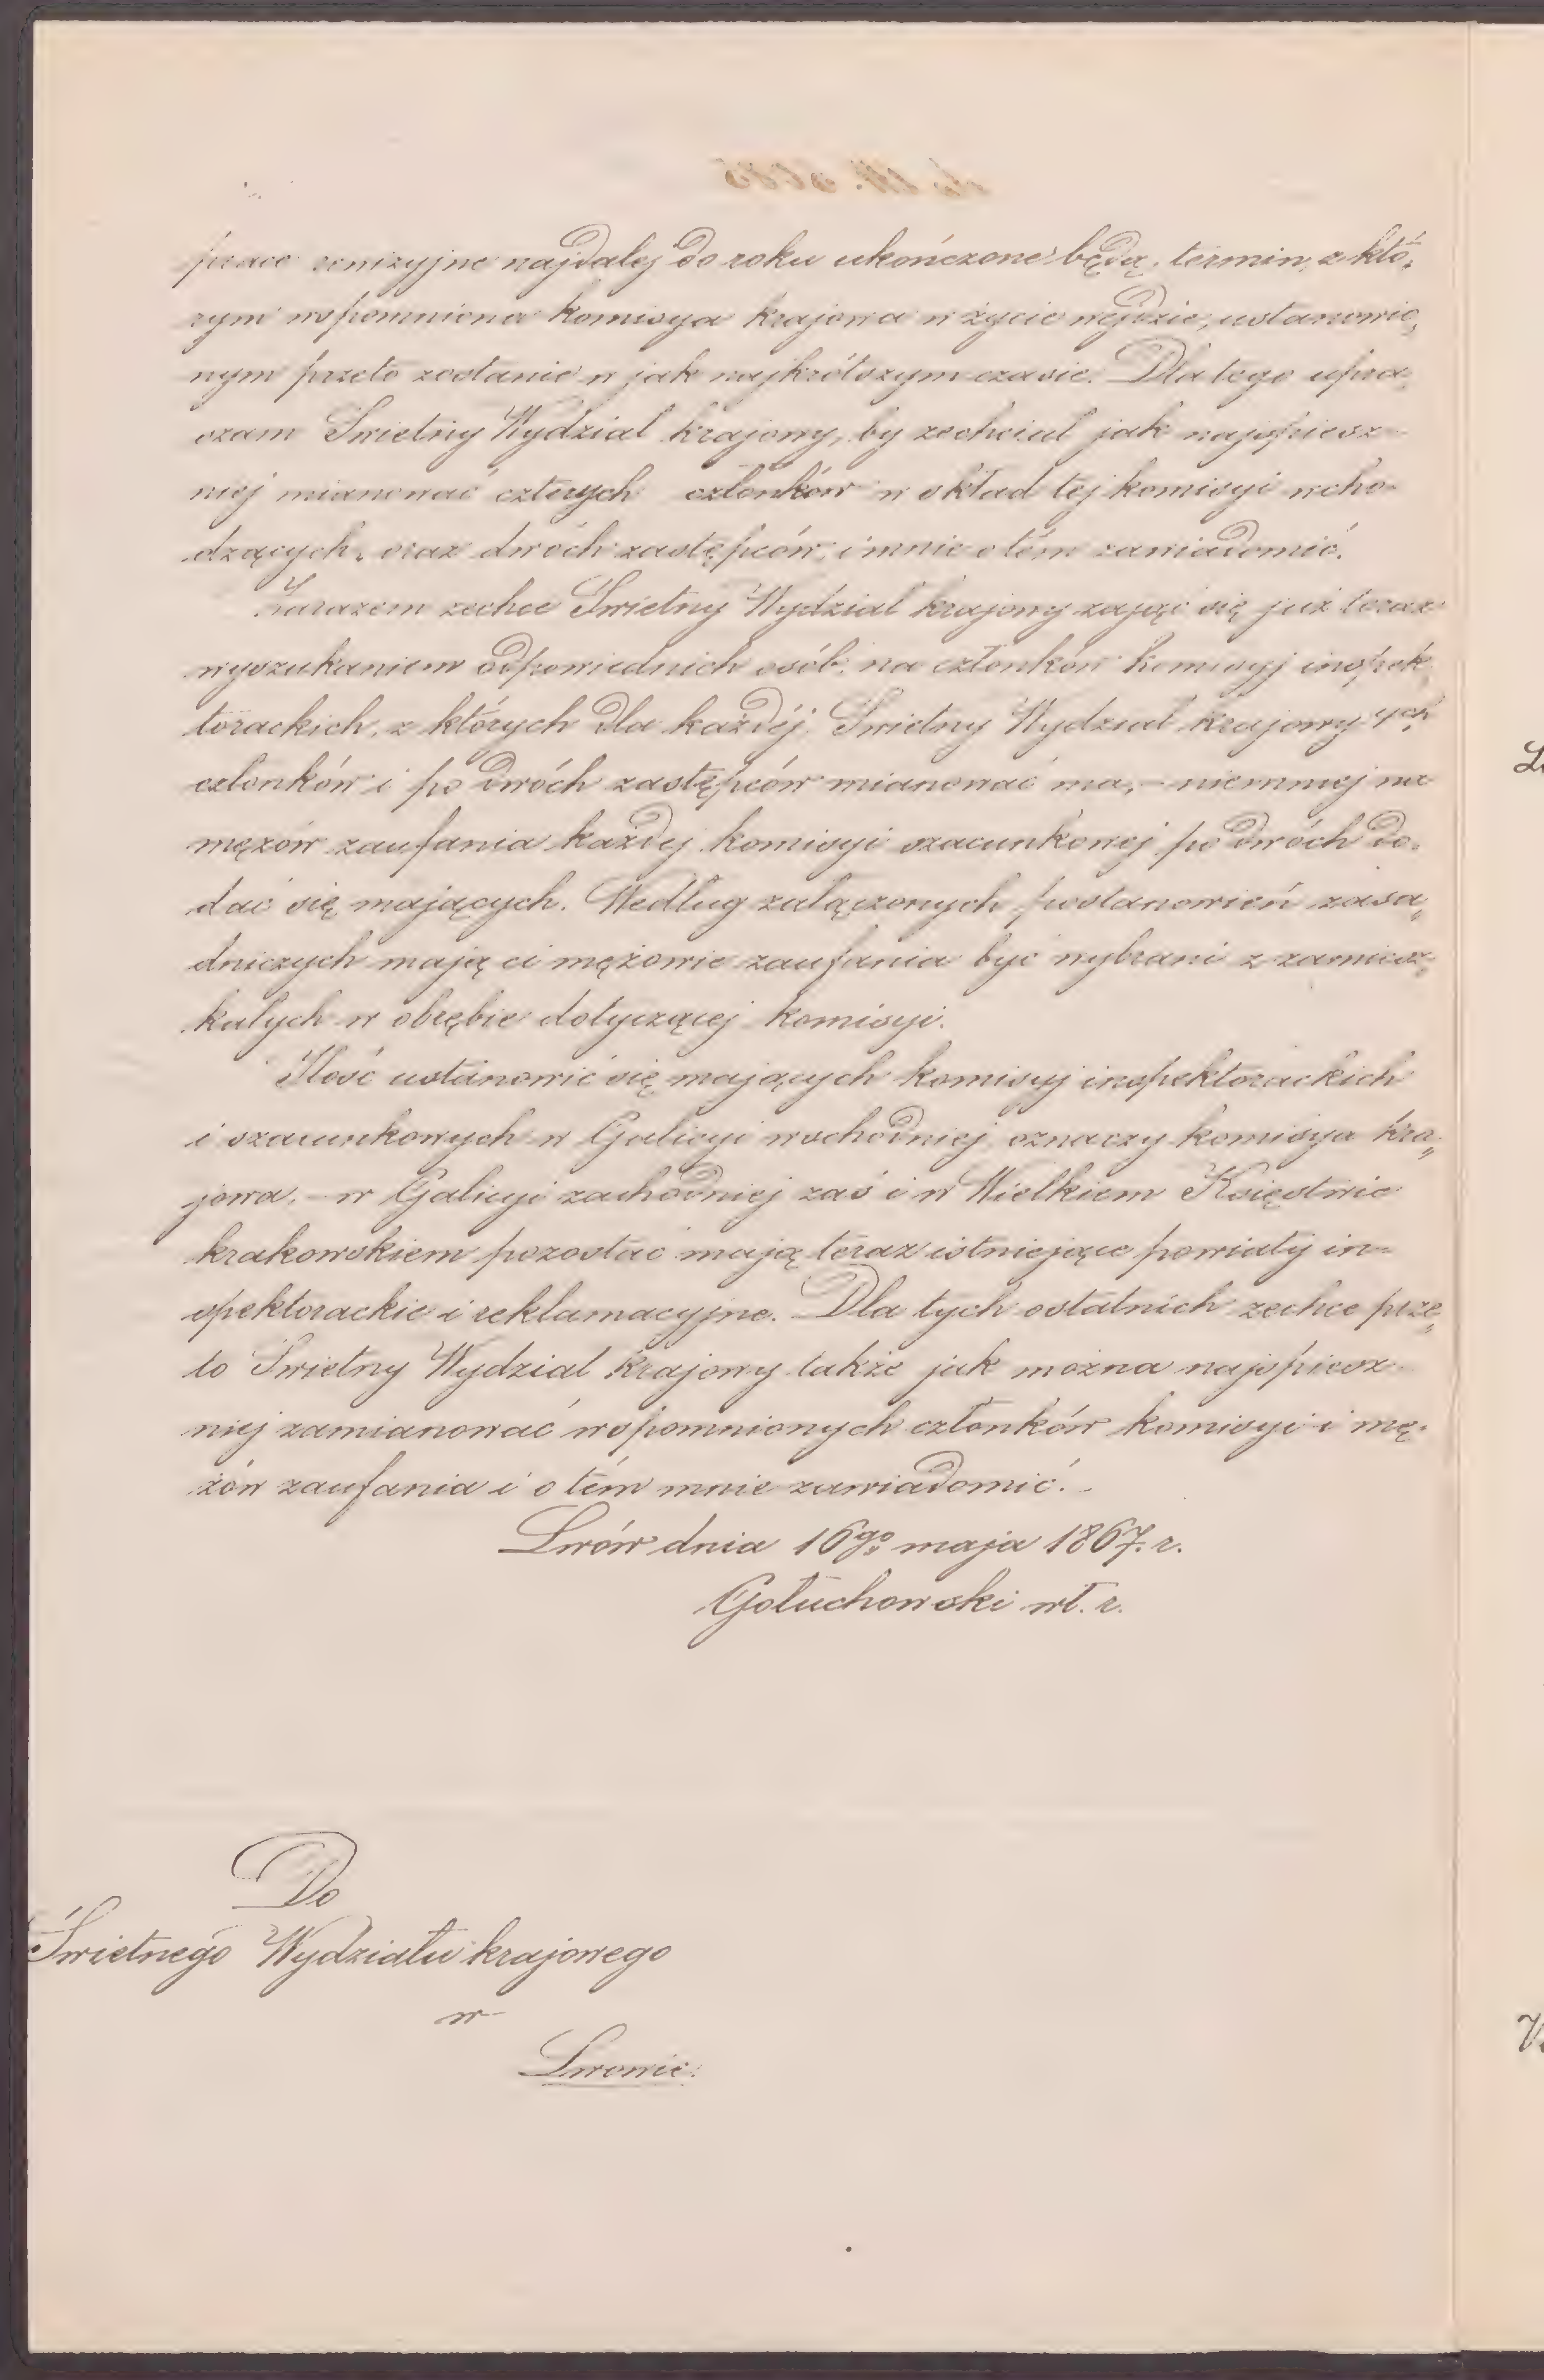 prace rewizyjne najdalej do roku ukończone będą, termin, z któ„
rym wspomniona komisya krajowa w życie wejdzie, ustanowio„
nym przeto zostanie w jak najkrótszym czasie. Dla tego upra„
szam Świetny Wydział krajowy, by zechciał jak najspiesz-
niej mianować czterych członków w skład tej komisyi wcho-
dzących, oraz dwóch zastępców, i mnie o tém zawiadomić.
Zarazem zechce Świetny Wydział krajowy zająć się już teraz
wyszukaniem odpowiednich osób, na członków komisyj inspek„
torackich, z których dla każdéj Świetny Wydział krajowy 4ch
członków i po dwóch zastępców mianować ma, – niemniej na
mężów zaufania każdej komisyi szacunkowej po dwóch do„
dać się mających. Według załączonych postanowień zasa„
dniczych mają ci mężowie zaufania być wybrani z zamiesz„
kałych w obrębie dotyczącej komisyi.
Ilość ustanowić się mających komisyj inspektorackich
i szacunkowych w Galicyi wschodniej oznaczy komisya kra„
jowa, – w Galicyi zachodniej zaś i w Wielkiem Księstwie
krakowskiem pozostać mają teraz istniejące powiaty in-
spektorackie i reklamacyjne. Dla tych ostatnich zechce prze„
to Świetny Wydział krajowy także jak można najspiesz-
niej zamianować wspomnionych członków komisyi i mę„
żów zaufania i o tém mnie zawiadomić.
Lwów dnia 16go maja 1867. r.
Gołuchowski wł. r.
Do
Świetnego Wydziału krajowego
w
Lwowie.